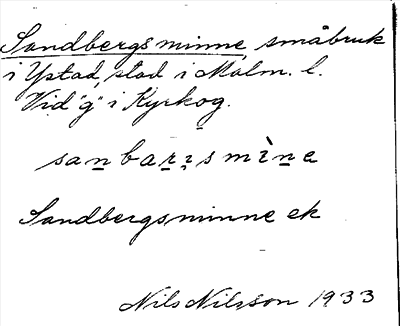 Sandbergsminne, småbruk
i Ystad, stad i Malm. l.
Vid "g" i Kyrkog.
sanbarısmìne
Sandbergsminne ek
Nils Nilsson 1933